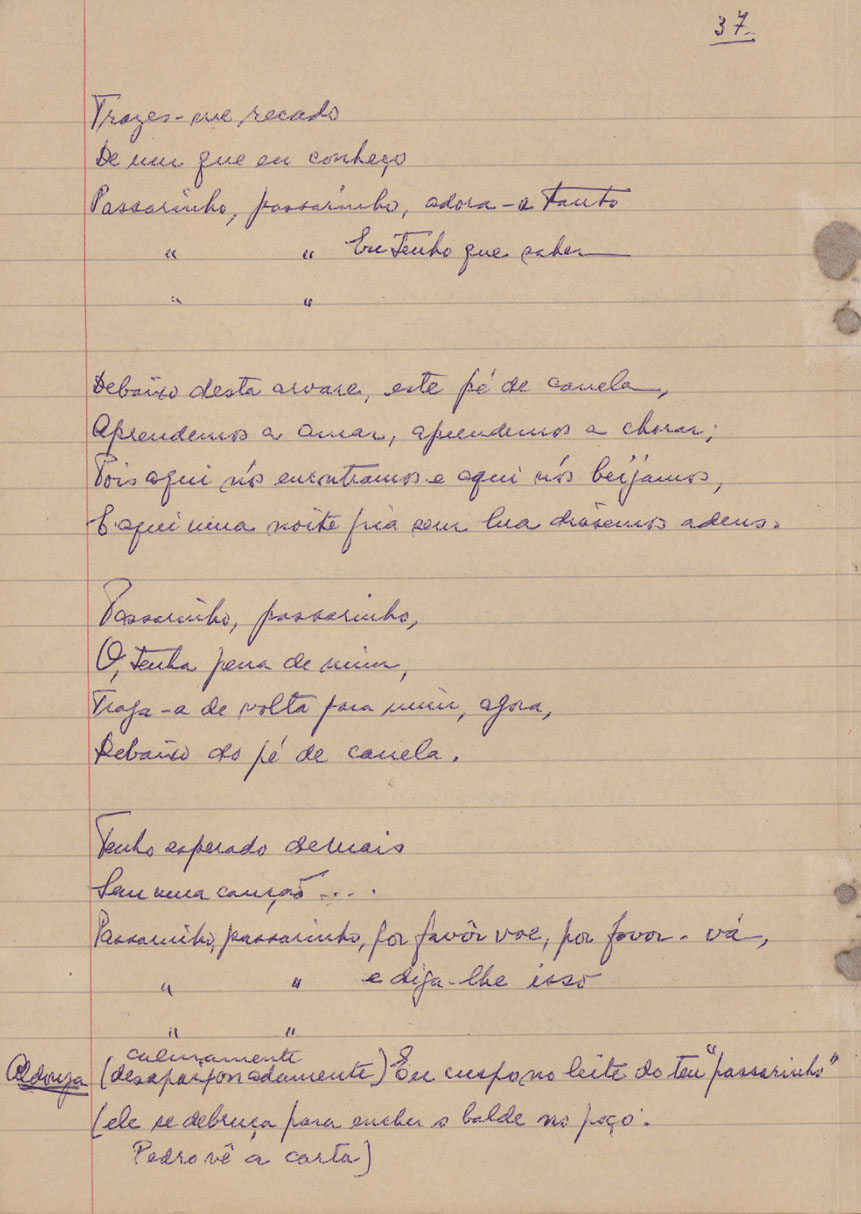 37
Trazes-me recado
De um que eu conheço
Passarinho, passarinho, adora-a tanto
" " Eu tenho que saber
" "
Debaixo desta arvore, este pé de canela,
Aprendemos a amar, aprendemos a chorar;
Pois aqui nós encontramos e aqui nós beijámos,
E aqui numa noite fria sem lua dissemos adeus.
Passarinho, passarinho,
O, tenha pena de mim,
Traga-a de volta para mim, agora,
Debaixo do pé de canela.
Tenho esperado demais
Sem uma canção ....
Passarinho, passarinho, por favôr voe, por favor - vá,
" " e diga-lhe isso
" "
calmamente
Aldonza (desapaixonadamente) Eu cuspo no leite do teu "passarinho"
(ele se debruça para encher o balde no poço.
Pedro vê a carta)